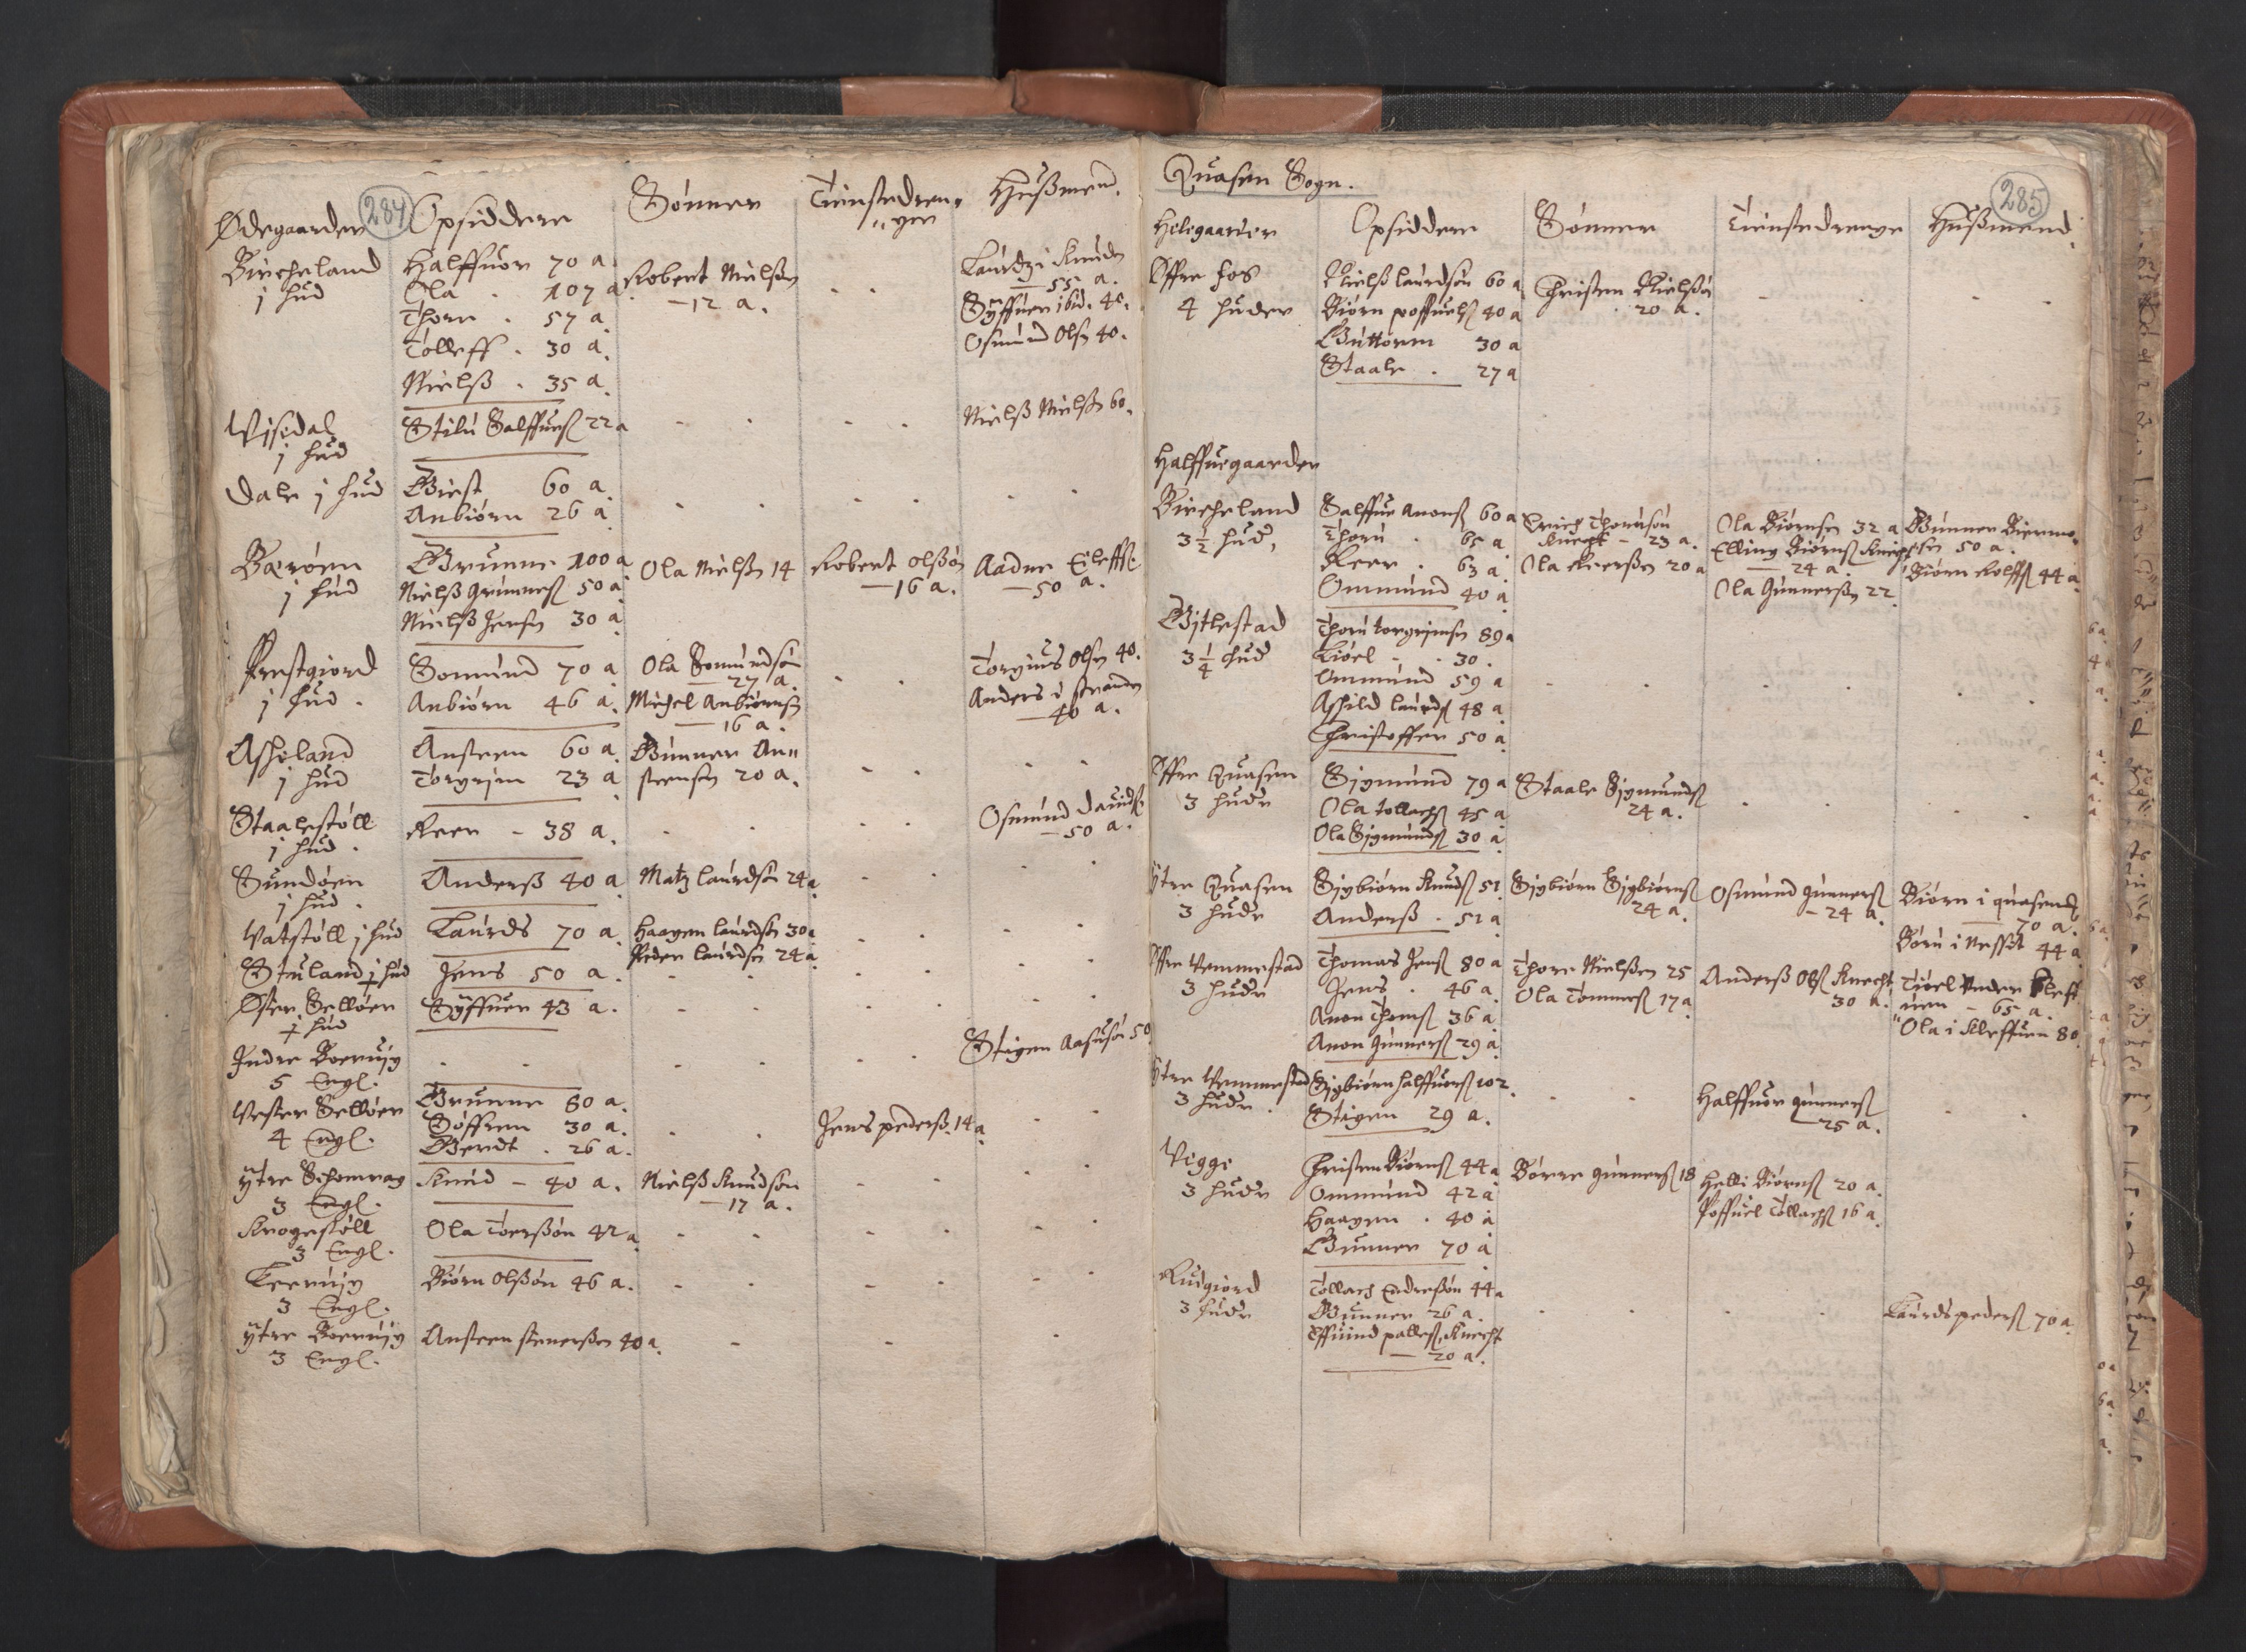 284
Ødegaarder Opsiddere Sønner Tienistedren-
"ger Hußmend.
Bircheland
1 hud
Halffuor 70 a
Ola . 107 a
Thore . 57 a
Tolleff . 30 a.
Nielß . 35 a.
Robert Nielsen
— 12 a.
Laurdz i Knuden
— 55 a.
Syffuer ibid. 40.
Osmund Olsen 40.
Visdal
1 hud
Stilu Salffuers 22 a
Nielß Nielsen 60.
Dale 1 hud
Giest 60 a.
Anbiørn 26 a
Bærøen
1 hud
Grunne 100 a
Nielß Grunners 50 a
Nielß Jensen 30 a
Ola Nielsen 14
Robert Olsøn
— 16 a.
Aadne Eileffs
— 50 a.
Prestgiord
1 hud .
Somund 70 a
Anbiørn 46 a.
Ola Somundsøn
— 27 a.
Michel Anbiørnsen
— 16 a.
Torgius Olsen 40.
Anders i stranden
— 40 a.
Asheland
1 hud
Ansteen 60 a.
Torgrim 23 a
Gunner An"
steensen 20 a.
Staalestøll
1 hud .
Reer - 38 a.
Osmund Dauids
— 50 a.
Sundøen
1 hud .
Anderß 40 a
Matz Laurdsøn 24 a
Vatstøll 1 hud
Laurds 70 a.
Haagen Laurdsen 30 a
Peder Laurdsen 24 a
Stuland ½ hud
Jens 50 a.
Øster Selløer
½ hud
Syffuer 43 a.
Indre Boeruig
5 Engl.
Stigen Aasusøn 50.
Vester Selløer
4 Engl.
Grunne 80 a.
Søffren 30 a.
Gerdt . 26 a.
Jens Pederß. 14 a
Ytre Schomrag
3 Engl.
Knud - 40 a.
Nielß Knudsøn
— 17 a.
Krogestøll
3 Engl.
Ola Toersøn 42 a
Leeruig
3 Engl.
Biørn Olßøn 46 a.
Ytre Boeruig
3 Engl.
Ansteen Stenersen 40 a.
285
Quasen Sogn.
Helegaarder Opsiddere Sønner Tienistedrenge Hußmend.
Øffre Fos
4 huder
Nielß Laurdsøn 60 a
Biørn Poffuels 40 a
Guttorm 30 a
Staale . 27 a
Christen Nielsøn
20 a.
Halffuegaarder
Bircheland
3½ hud,
Salffue Anons 60 a
Thoru . 65 a
Reer . 63 a
Ommund 40 a
Erich Thorusøn
Knegt - 23 a.
Ola Reersen 20 a
Ola Biørnsen 32 a
Elling Biørns Knegt
— 24 a.
Ola Gunnersen 22.
Gunner Bierno-
sen 50 a.
Biørn Rolffs 44 a
Gitlestad
3¼ hud
Thoru Torgrimsen 89 a
Kiøel . . 30.
Ommund 59 a
Ashild Laurds 48 a
Christoffer 50 a.
Øffre Quasen
3 huder
Sigmund 79 a
Ola Tollachs 45 a
Ola Sigmunds 30 a
Staale Sigmunds
24 a.
Ytre Quasen
3 huder
Sigbiørn Knuds 51.
Anderß . 51 a
Sigbiørn Sigbiørns
24 a.
Osmund Gunners
- 24 a.
Biørn i Quasend
70 a.
Børu i Nesset 44 a
Øffre Vemmestad
3 huder
Thomas Jens 80 a
Jens . 46 a.
Anon Thoms 36 a
Anon Gunners 29 a.
Thore Nielßen 25
Ola Tommes 17 a
Anderß Ols Knecht
30 a.
Tiøel Vnder Kleff
"uen - 65 a.
Ola i Kleffuen 80.
Ytre Vemmestad
3 huder .
Sigbiørn Halffuors 102.
Stigen 29 a.
Halffuor Gunners
— 25 a.
Vegge
3 huder
Christen Biørns 44 a
Ommund 42 a
Haagen . 40 a
Gunner 70 a
Børre Gunners 18
Helli Biørns 20 a.
Poffuel Tollachs 16 a.
Rudgiord
3 huder
Tollach Endresøn 44 a
Gunner 26 a.
Effuind Palles, Knecht
— 20 a.
Laurds Peders 70 a.